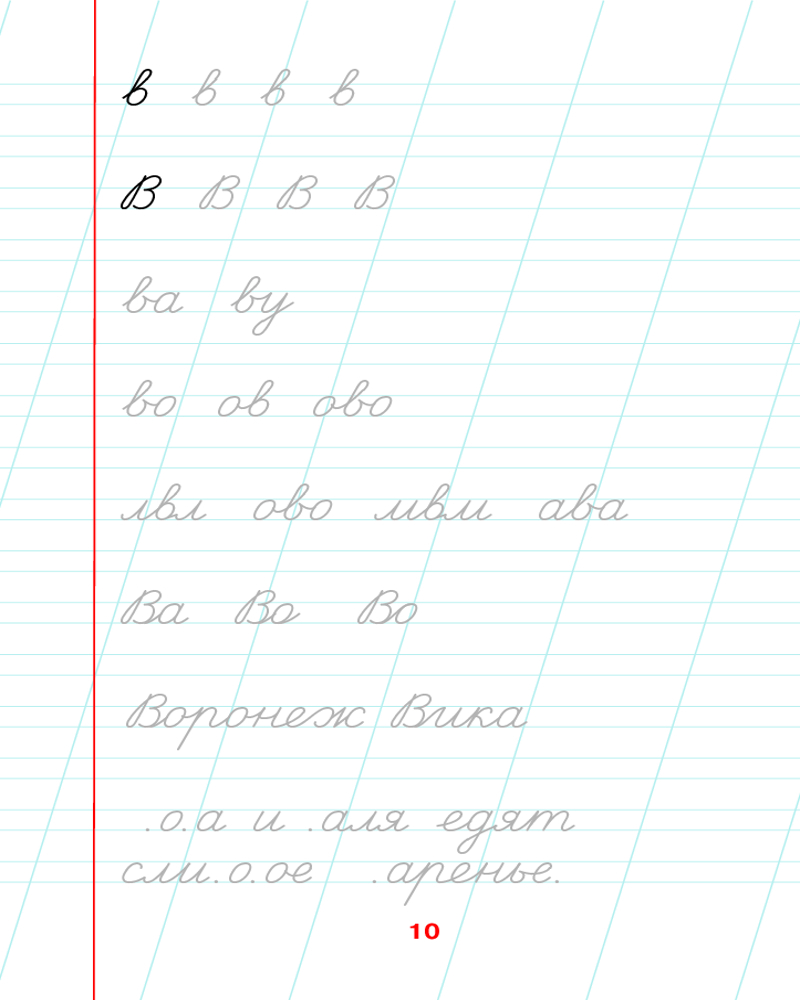 в в в в
В В В В
ва ву
во ов ово
лвл ово мвм ава
Ва Во Во
Воронеж Вика
.о.а и .аля едят
сли.о.ое .аренье.
10